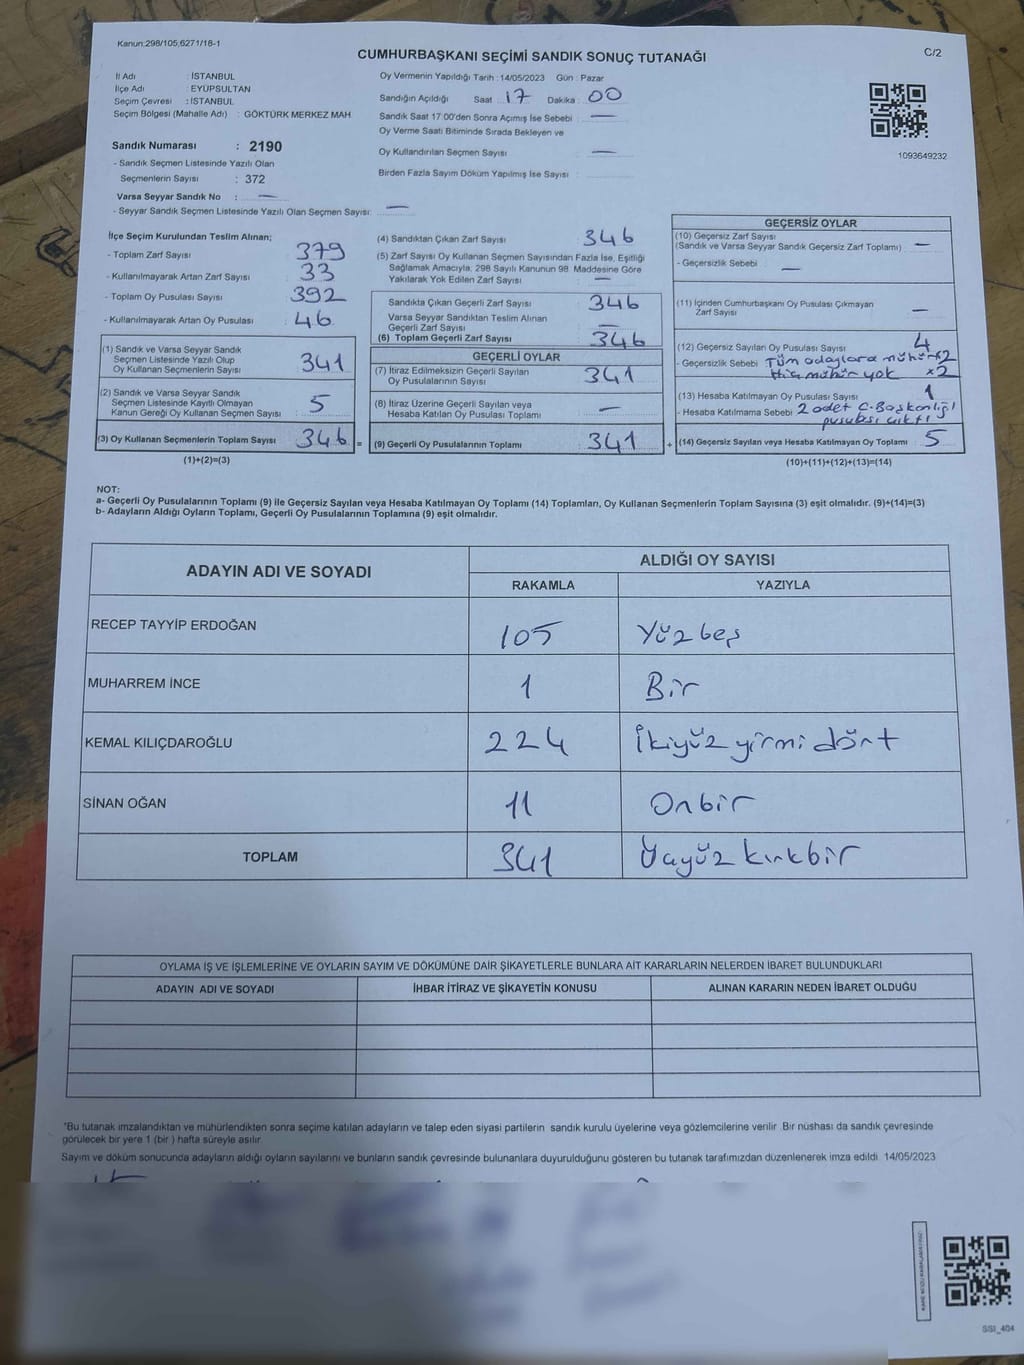 Kanun:298/105,6271/18-1
CUMHURBAŞKANI SEÇİMİ SANDIK SONUÇ TUTANAĞI
C/2
İl Adı : İSTANBUL
İlçe Adı : EYÜPSULTAN
Seçim Çevresi : İSTANBUL
Seçim Bölgesi (Mahalle Adı) : GÖKTÜRK MERKEZ MAH
Sandık Numarası : 2190
- Sandık Seçmen Listesinde Yazılı Olan
Seçmenlerin Sayısı : 372
Varsa Seyyar Sandık No : —
- Seyyar Sandık Seçmen Listesinde Yazılı Olan Seçmen Sayısı: —
Oy Vermenin Yapıldığı Tarih : 14/05/2023 Gün : Pazar
Sandığın Açıldığı Saat 17 Dakika : 00
Sandık Saat 17.00'den Sonra Açımış İse Sebebi : —
Oy Verme Saati Bitiminde Sırada Bekleyen ve
Oy Kullandırılan Seçmen Sayısı : —
Birden Fazla Sayım Döküm Yapılmış İse Sayısı :
1093649232
İlçe Seçim Kurulundan Teslim Alınan;
- Toplam Zarf Sayısı : 379
- Kullanılmayarak Artan Zarf Sayısı : 33
- Toplam Oy Pusulası Sayısı : 392
- Kullanılmayarak Artan Oy Pusulası : 46
(1) Sandık ve Varsa Seyyar Sandık
Seçmen Listesinde Yazılı Olup
Oy Kullanan Seçmenlerin Sayısı : 341
(2) Sandık ve Varsa Seyyar Sandık
Seçmen Listesinde Kayıtlı Olmayan
Kanun Gereği Oy Kullanan Seçmen Sayısı : 5
(3) Oy Kullanan Seçmenlerin Toplam Sayısı : 346
(1)+(2)=(3)
(4) Sandıktan Çıkan Zarf Sayısı : 346
(5) Zarf Sayısı Oy Kullanan Seçmen Sayısından Fazla İse, Eşitliği
Sağlamak Amacıyla, 298 Sayılı Kanunun 98. Maddesine Göre
Yakılarak Yok Edilen Zarf Sayısı : —
Sandıkta Çıkan Geçerli Zarf Sayısı : 346
Varsa Seyyar Sandıktan Teslim Alınan
Geçerli Zarf Sayısı : —
(6) Toplam Geçerli Zarf Sayısı : 346
GEÇERLİ OYLAR
(7) İtiraz Edilmeksizin Geçerli Sayılan
Oy Pusulalarının Sayısı : 341
(8) İtiraz Üzerine Geçerli Sayılan veya
Hesaba Katılan Oy Pusulası Toplamı : —
= (9) Geçerli Oy Pusulalarının Toplamı : 341 +
GEÇERSİZ OYLAR
(10) Geçersiz Zarf Sayısı
(Sandık ve Varsa Seyyar Sandık Geçersiz Zarf Toplamı) : —
- Geçersizlik Sebebi : —
(11) İçinden Cumhurbaşkanı Oy Pusulası Çıkmayan
Zarf Sayısı : —
(12) Geçersiz Sayılan Oy Pusulası Sayısı : 4
- Geçersizlik Sebebi Tüm adaylara mühür x2
Hiç mühür yok x2
(13) Hesaba Katılmayan Oy Pusulası Sayısı : 1
- Hesaba Katılmama Sebebi : 2 adet C.Başkanlığı
pusulası çıktı
(14) Geçersiz Sayılan veya Hesaba Katılmayan Oy Toplamı : 5
(10)+(11)+(12)+(13)=(14)
NOT:
a- Geçerli Oy Pusulalarının Toplamı (9) ile Geçersiz Sayılan veya Hesaba Katılmayan Oy Toplamı (14) Toplamları, Oy Kullanan Seçmenlerin Toplam Sayısına (3) eşit olmalıdır. (9)+(14)=(3)
b- Adayların Aldığı Oyların Toplamı, Geçerli Oy Pusulalarının Toplamına (9) eşit olmalıdır.
ADAYIN ADI VE SOYADI
ALDIĞI OY SAYISI
RAKAMLA YAZIYLA
RECEP TAYYİP ERDOĞAN 105 Yüzbeş
MUHARREM İNCE 1 Bir
KEMAL KILIÇDAROĞLU 224 İkiyüz yirmi dört
SİNAN OĞAN 11 Onbir
TOPLAM 341 Üçyüz kırkbir
OYLAMA İŞ VE İŞLEMLERİNE VE OYLARIN SAYIM VE DÖKÜMÜNE DAİR ŞİKAYETLERLE BUNLARA AİT KARARLARIN NELERDEN İBARET BULUNDUKLARI
ADAYIN ADI VE SOYADI İHBAR İTİRAZ VE ŞİKAYETİN KONUSU ALINAN KARARIN NEDEN İBARET OLDUĞU
"Bu tutanak imzalandıktan ve mühürlendikten sonra seçime katılan adayların ve talep eden siyasi partilerin sandık kurulu üyelerine veya gözlemcilerine verilir .Bir nüshası da sandık çevresinde
görülecek bir yere 1 (bir ) hafta süreyle asılır.
Sayım ve döküm sonucunda adayların aldığı oyların sayılarını ve bunların sandık çevresinde bulunanlara duyurulduğunu gösteren bu tutanak tarafımızdan düzenlenerek imza edildi 14/05/2023
SSI_404